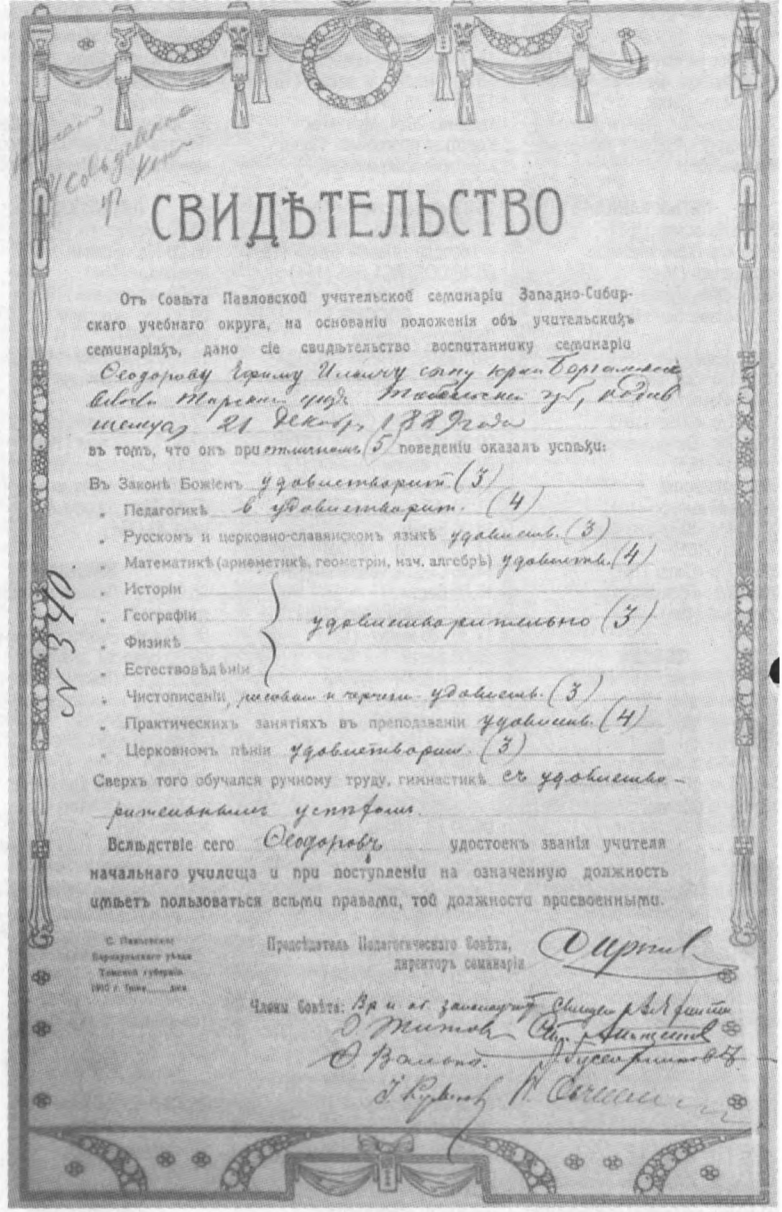 СВИДѢТЕЛЬСТВО
Отъ Совѣта Павловской учительской семинаріи Западно-Сибир-
скаго учебнаго округа, на основаніи положенія объ учительскихъ
семинаріяхъ, дано сіе свидѣтельство воспитаннику семинаріи
Ѳеодорову Ефиму Ильичу сыну
Тарскаго Тобольской губ, родив
шемуся 21 Декабр 1889 года
въ томъ, что онъ при отличномъ (5) поведеніи оказалъ успѣхи:
Въ Законѣ Божіемъ удовлетворит. (3)
„ Педагогикѣ удовлетворит. (4)
„ Русскомъ и церковно-славянскомъ языкѣ удовлетв. (3)
„ Математикѣ (ариѳметикѣ, геометріи, нач. алгебрѣ) удовлетв. (4)
„ Исторіи
„ Географіи удовлетворительно (3)
„ Физикѣ
„ Естествовѣдѣніи
„ Чистописаніи, рисован и черчен удовлетв. (3)
„ Практическихъ занятіяхъ въ преподаваніи удовлетв. (4)
„ Церковномъ пѣніи удовлетворит. (3)
N 340.
Сверхъ того обучался ручному труду, гимнастикѣ съ удовлетво-
рительнымъ успѣхомъ.
Вслѣдствіе сего Ѳеодоровъ удостоенъ званія учителя
начальнаго училища и при поступленіи на означенную должность
имѣетъ пользоваться всѣми правами, той должности присвоенными.
С. Павловское
Барнаульскаго уѣзда
Томской губерніи
1910 г. Іюня дня
Предсѣдатель Педагогическаго Совѣта,
директоръ семинаріи
Члены Совѣта: